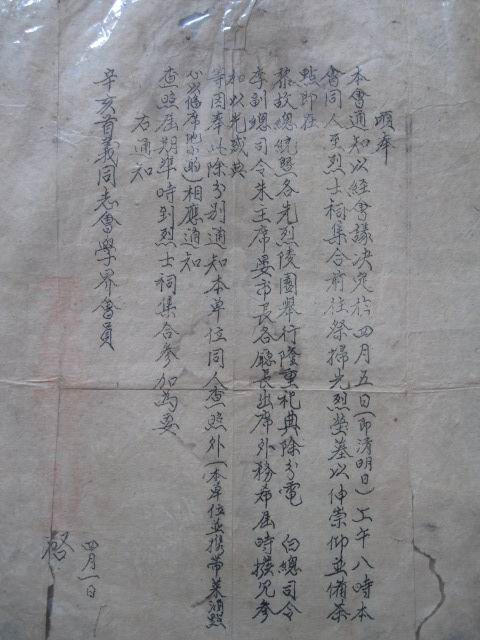 頃奉
本會通知以經會議決定於四月五日(即清明日)上午八時本
會同人至烈士祠集合前往祭掃先烈塋墓以伸崇仰並備茶
點即在
黎故總統暨各先烈陵園舉行隆重祀典除分電 白總司令
李副總司令朱主席晏市長各廳長出席外務希屆時撥冗參
加以光盛典
等因奉此除分別通知本單位同人查照外(本單位並攜帶菜酒照
相應通知
查照屆期準時到烈士祠集合參加為要
右通知
辛亥首義同志會學界會員
四月一日
啓